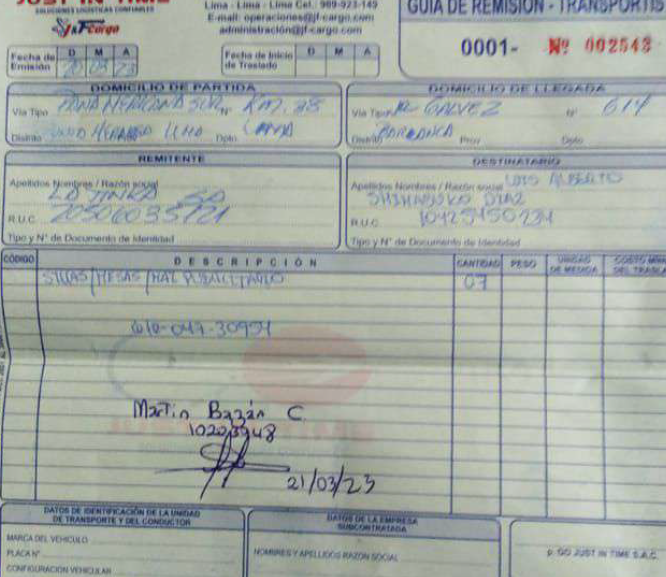 JUST IN TIME
SOLUCIONES LOGÍSTICAS CONFIABLES
J&F Cargo
Lima - Lima - Lima Cel.: 989-923-149
E-mail: operaciones@jf-cargo.com
administración@jf-cargo.com
GUIA DE REMISIÓN - TRANSPORTIS
0001- Nº 002543
Fecha de Emisión D M A
20 03 23
Fecha de Inicio de Traslado D M A
DOMICILIO DE PARTIDA
Vía Tipo PANAMERICANA SUR Nº KM. 38
Distrito PUNTA HERMOSA LIMA Dpto. LIMA
DOMICILIO DE LLEGADA
Vía Tipo JR GALVEZ Nº 614
Distrito BARRANCA Prov. Dpto.
REMITENTE
Apellidos Nombres / Razón social
LA TINKA SA
R.U.C. 20506035121
Tipo y N° de Documento de Identidad
DESTINATARIO
Apellidos Nombres / Razón social LUIS ALBERTO
DIAZ
R.U.C. 10425450234
Tipo y N° de Documento de Identidad
CODIGO DESCRIPCIÓN CANTIDAD PESO UNIDAD DE MEDIDA COSTO MINI DEL TRASLA
SILLAS/MESAS/MAT PUBLICITARIO 07
610-047-30954
Martin Bazán C.
10203948
21/03/23
DATOS DE IDENTIFICACIÓN DE LA UNIDAD
DE TRANSPORTE Y DEL CONDUCTOR
MARCA DEL VEHICULO
PLACA N°
CONFIGURACION VEHICULAR
DATOS DE LA EMPRESA
SUBCONTRATADA
NOMBRES Y APELLIDOS RAZON SOCIAL
p. GO JUST IN TIME S.A.C.